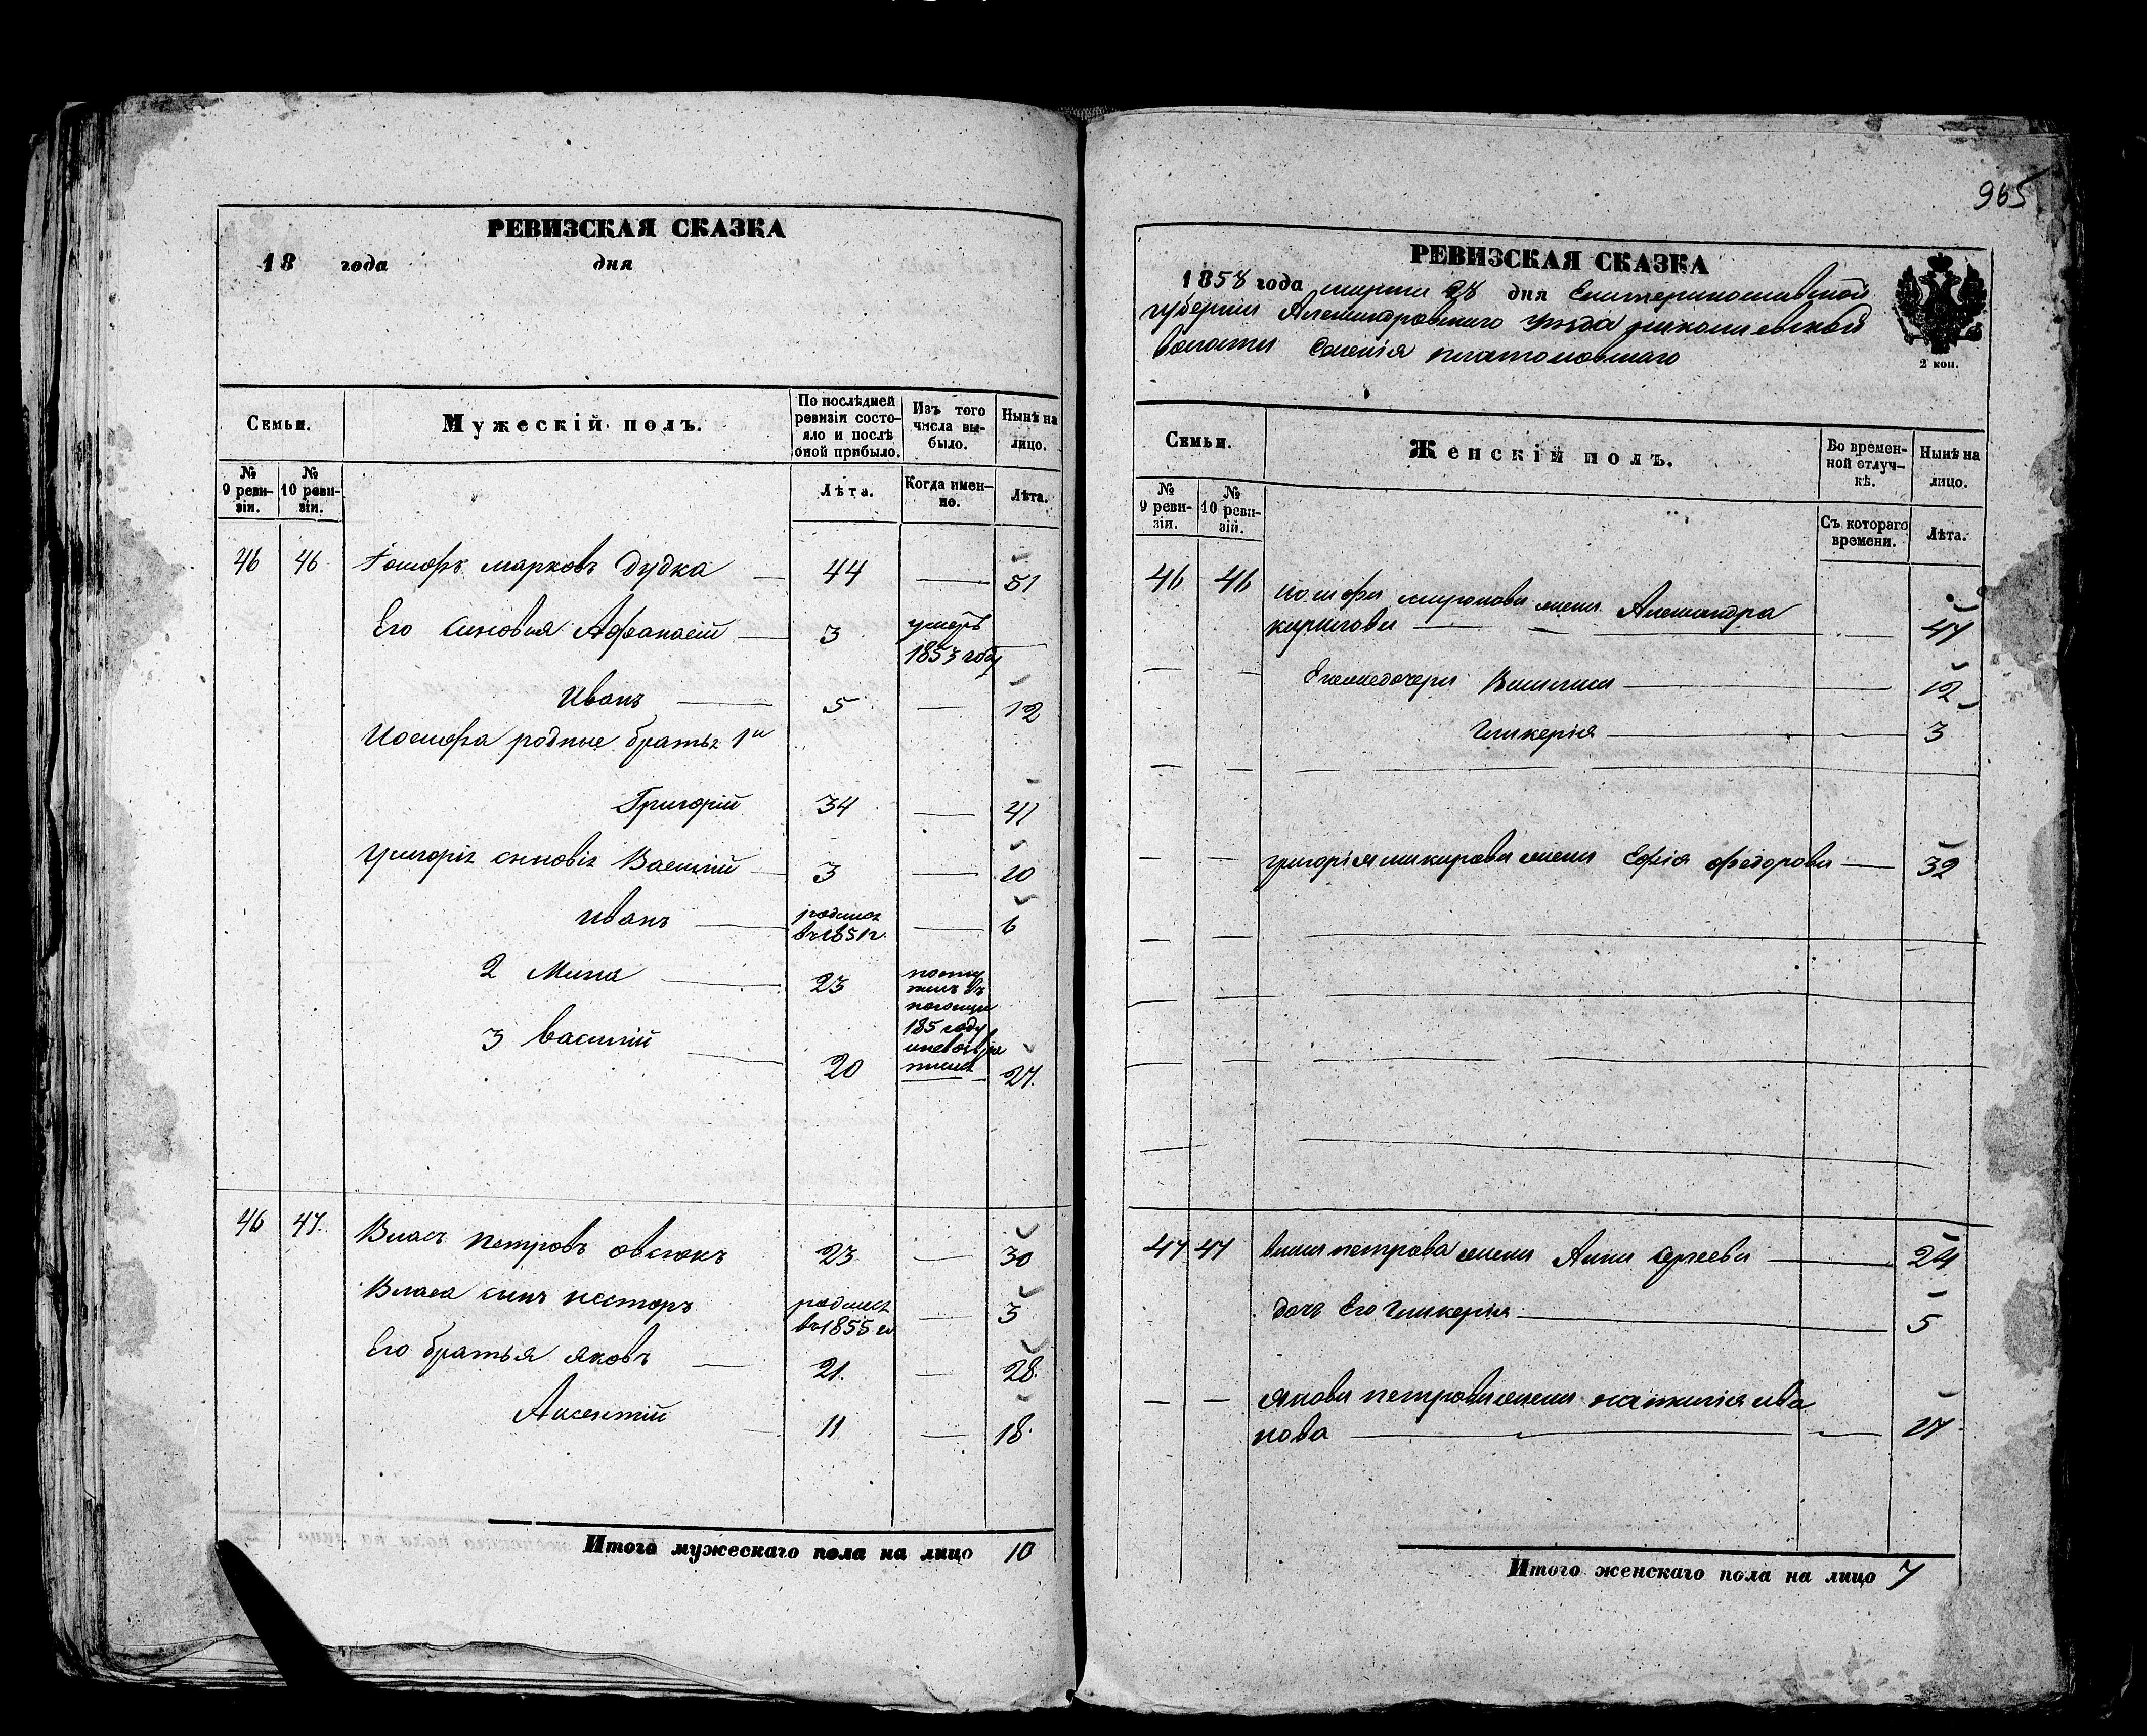 965
РЕВИЗСКАЯ СКАЗКА
18 года дня
Семьи.
Мужескій полъ.
По послѣдней ревизіи состояло и послѣ оной прибыло.
Изъ того числа выбыло.
Нынѣ на лицо.
№ 9 ревизіи.
№ 10 ревизіи.
Лѣта.
Когда именно.
Лѣта.
46 46 марковъ Дудка 44 51
Его синовья Афанасій 3 умеръ 1853 году
Иванъ 5 12
Иосифа родные братья 1й
Григорій 34 41
синовія Василій 3 10
иванъ родился въ 1851 г. 6
2 Мина 23
185 году
3 василій 20 27
46 47 Власъ петровъ овсюкъ 23 30
Власа сынъ несторъ родился въ 1855 3
Его братья яковъ 21 28
Аксентій 11 18
Итого мужескаго пола на лицо 10
РЕВИЗСКАЯ СКАЗКА
1858 года марта 28 дня Екатеринославской
губерніи Александровского уезда николаевской
волости Селенія платоновкаго
2 коп.
Семьи.
Женскій полъ.
Во временной отлучкѣ.
Нынѣ на лицо.
№ 9 ревизіи.
№ 10 ревизіи.
Съ котораго времени.
Лѣта.
46 46 жена Александра
кирилова 47
Василиса 12
Гликерія 3
григорія жена Ефія федорова 32
47 47 власа петрова жена Анна сергеева 24
дочь Его гликерія 5
якова петрова жена наталія ива
нова 27
Итого женскаго пола на лицо 7